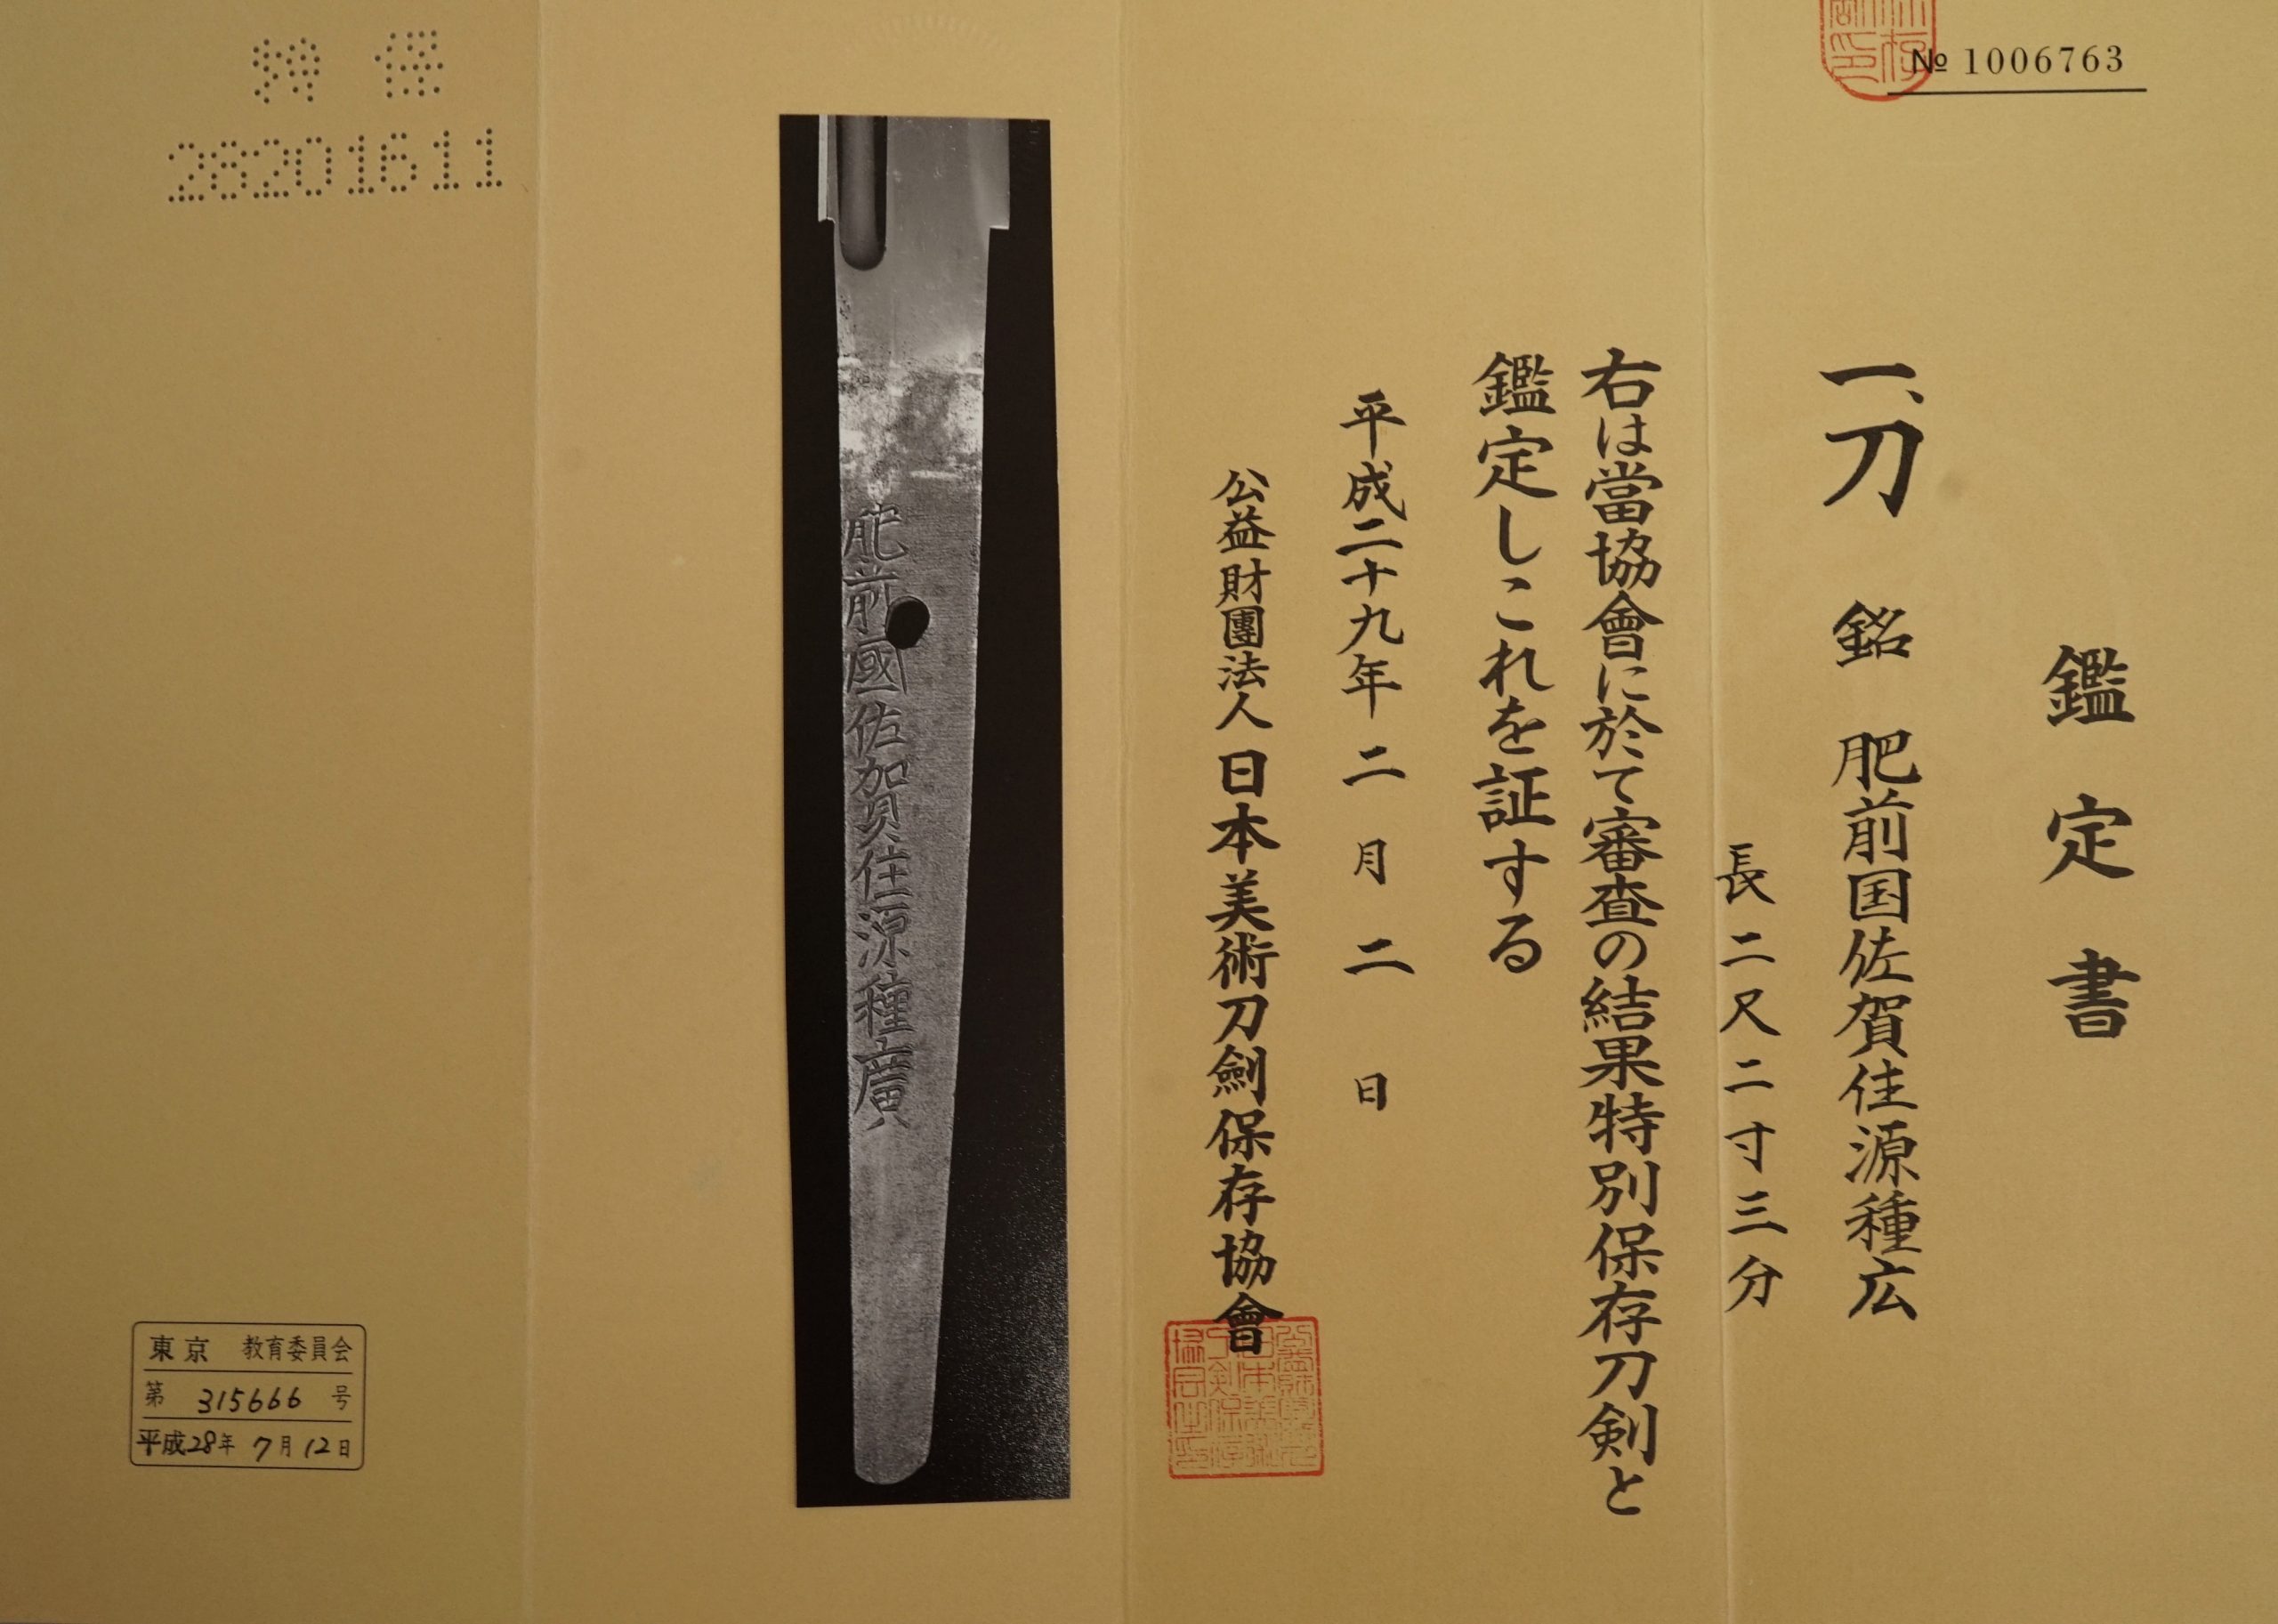 № 1006763
鑑定書
一、刀 銘 肥前国佐賀住源種広
長二尺二寸三分
右は當協會に於て審査の結果特別保存刀剣と
鑑定しこれを証する
平成二十九年二月二日
公益財團法人日本美術刀劍保存協會
肥前國佐賀住源種廣
特保
28201611
東京 教育委員会
第 315666 号
平成28年 7月12日